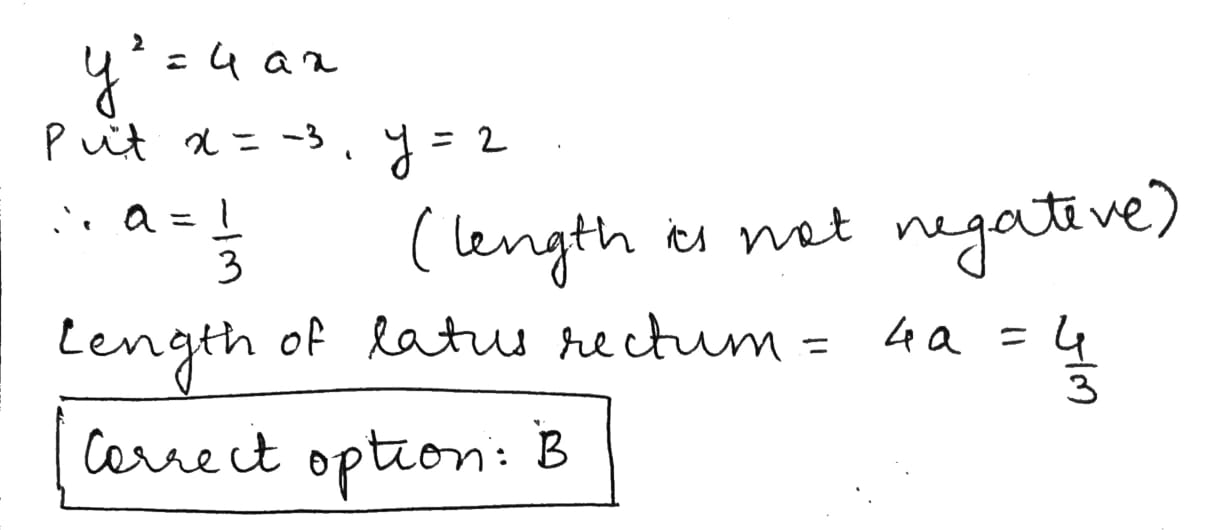 y² = 4 a x
Put x = -3, y = 2
∴ a = 1/3 (length is not negative)
Length of latus rectum = 4a = 4/3
Correct option: B